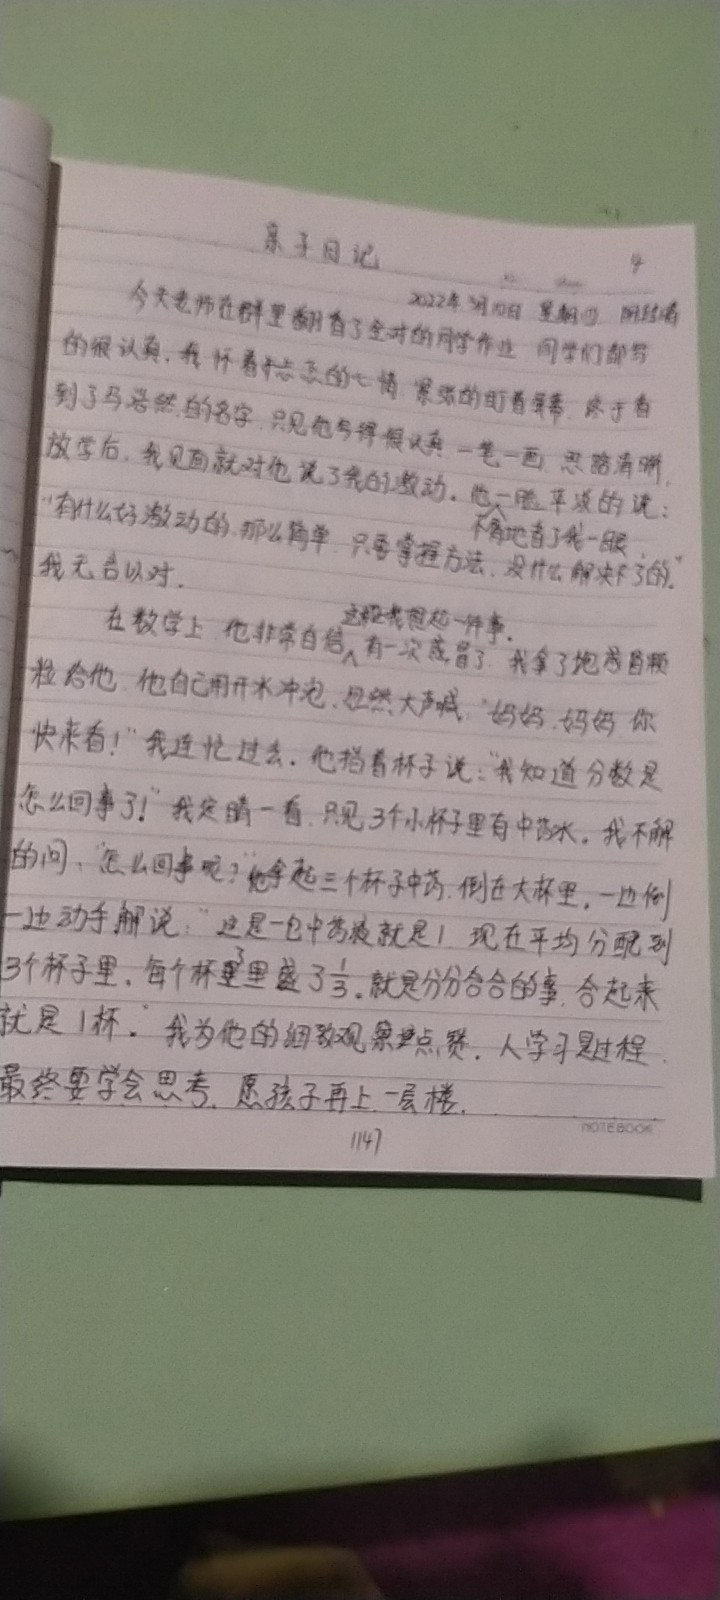 亲子日记
4
2022年3月10日 星期四
今天老师在群里翻看了全对的同学作业 同学们都写
的很认真,我怀着忐忑的心情 紧张的盯着屏幕,终于看
到了马浩然的名字,只见他写得很认真 一笔一画 思路清晰,
放学后,我见面就对他说了我的激动。他一脸平淡的说:
不屑地看了我一眼,
“有什么好激动的,那么简单,只要掌握方法,没什么解决不了的。”
我无言以对.
这让我想起一件事.
在数学上 他非常自信 有一次感冒了 我拿了地感冒颗
粒给他,他自己用开水冲泡,忽然大声喊:“妈妈,妈妈 你
快来看!”我连忙过去。他指着杯子说:“我知道分数是
怎么回事了!”我定睛一看,只见3个小杯子里有中药水。我不解
的问:“怎么回事呢?”他拿起三个杯子中药,倒在大杯里,一边倒
一边动手解说:“这是一包中药液就是1 现在平均分配到
3个杯子里,每个杯子里盛了1/3。就是分分合合的事,合起来
就是1杯。”我为他的细致观察点赞,人学习是过程,
最终要学会思考,愿孩子再上一层楼.
NOTEBOOK
1147